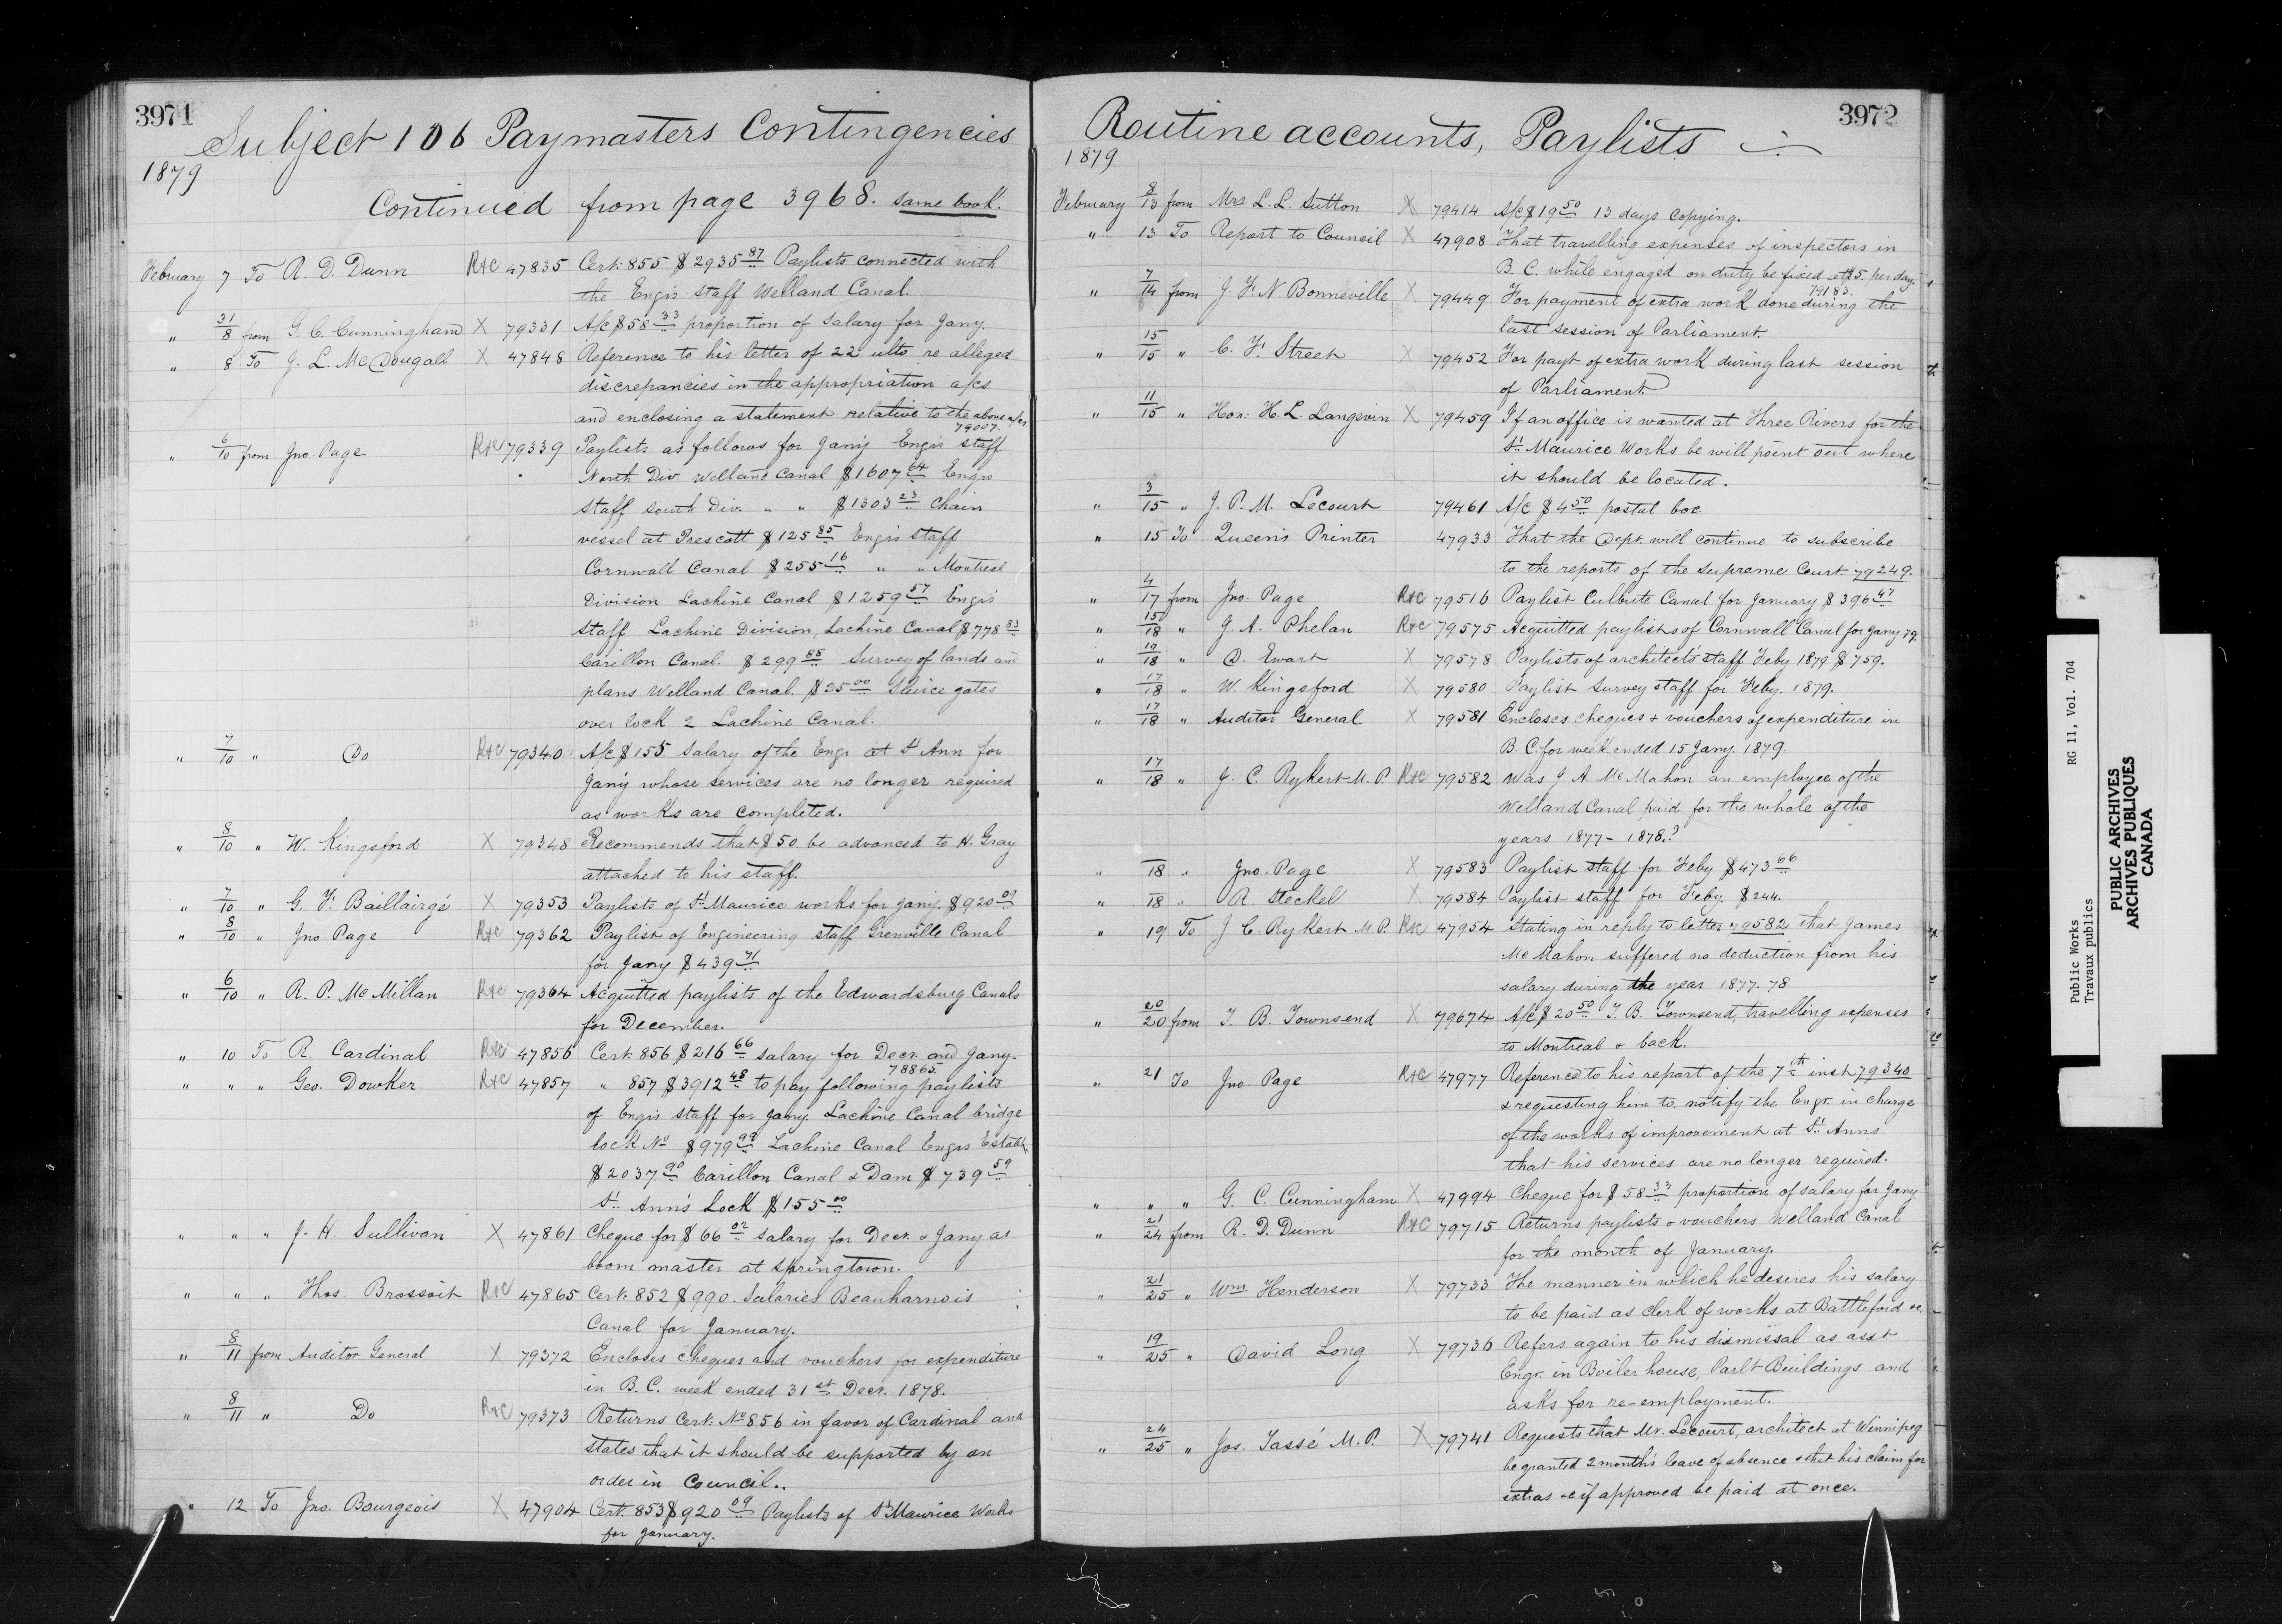 3971
Subject 106 Paymasters Contingencies
1879
Continued from page 3968. same book.
February 7 To R. D. Dunn R&C 47835 Cert. 855 $2935 87 Paylists connected with
the Engr's Staff Welland Canal.
" 31/8 from G. C. Cunningham X 79331 A/c $58 33 proportion of salary for Jany.
" 8 To J. L. McDougall X 47848 Reference to his letter of 22 ulto re alleged
discrepancies in the appropriation a/cs
and enclosing a statement relative to the above a/cs
79007.
" 6/10 from Jno. Page R&C 79339 Paylists as follows for Jan'y Engrs staff
North Div. Welland Canal $1607 64 Engrs
Staff South Div. " " $1303 23 Chain
vessel at Prescott $125 85 Engr's Staff
Cornwall Canal $255 16 " " Montreal
Division Lachine Canal $1259 57 Engrs'
Staff Lachine Division, Lachine Canal $778 83
Carillon Canal. $299 85 Survey of lands and
plans Welland Canal. $25 00 Sluice gates
over lock 2 Lachine Canal.
" 7/10 " Do R&C 79340 A/c $155. Salary of the Engr at St Ann for
Jan'y whose services are no longer required
as works are completed.
" 8/10 " W. Kingsford X 79348 Recommends that $50 be advanced to H. Gray
attached to his staff.
" 7/10 " G. F. Baillairgé X 79353 Paylists of St Maurice works for Jan'y. $920 09
" 8/10 " Jno Page R&C 79362 Paylist of Engineering staff Grenville Canal
for Jany $439 71
" 6/10 " R. P. McMillan R&C 79364 Acquitted paylists of the Edwardsburg Canals
for December.
" 10 To R. Cardinal R&C 47856 Cert. 856 $216 66 salary for Decr. and Jany.
78865.
" " " Geo. Dowker R&C 47857 " 857 $3912 48 to pay following paylists
of Engrs staff for Jany. Lachine Canal bridge
lock No $979 99 Lachine Canal Engrs Establ
$2037 90 Carillon Canal & Dam $739 59
St. Ann's Lock $155 00
" " " J. H. Sullivan X 47861 Cheque for $66 02 salary for Decr. & Jany as
boom master at Springtown.
" " " Thos Brossoit R&C 47865 Cert. 852 $990. Salaries Beauharnois
Canal for January.
" 8/11 from Auditor General X 79372 Encloses cheques and vouchers for expenditure
in B. C. week ended 31st Decr. 1878.
" 8/11 " Do R&C 79373 Returns Cert. No 856 in favor of Cardinal and
states that it should be supported by an
order in Council..
" 12 To Jno. Bourgeois X 47904 Cert. 853 $920 09 Paylists of St Maurice Works
for January.
3972
Routine accounts, Paylists
1879
February 8/13 from Mrs L. L. Sutton X 79414 A/c $19 50 13 days copying.
" 13 To Report to Council X 47908 That travelling expenses of inspectors in
B. C. while engaged on duty be fixed at $5. per day.
79183.
" 7/14 from J. F. N. Bonneville X 79449 For payment of extra work done during the
last session of Parliament.
" 15/15 " C. F. Street X 79452 For payt of extra work during last session
of Parliament
" 11/15 " Hon. H. L. Langevin X 79459 If an office is wanted at Three Rivers for the
St. Maurice Works he will point out where
it should be located.
" 3/15 " J. P. M. Lecourt 79461 A/c $4 50 postal box
" 15 To Queen's Printer 47933 That the Dept. will continue to subscribe
to the reports of the Supreme Court. 79249.
" 4/17 from Jno. Page R&C 79516 Paylist Culbute Canal for January $396 47
" 15/18 " J. A. Phelan R&C 79575 Acquitted paylists of Cornwall Canal for Jany 79.
" 19/18 " D. Ewart X 79578 Paylists of architect's staff Feby 1879 $759.
" 17/18 " W. Kingsford X 79580 Paylist Survey staff for Feby. 1879.
" 17/18 " Auditor General X 79581 Encloses cheques & vouchers of expenditure in
B. C. for week ended 15 Jany. 1879.
" 17/18 " J. C. Rykert M. P. R&C 79582 Was J A. McMahon an employee of the
Welland Canal paid for the whole of the
years 1877-1878.?
" 18 " Jno. Page X 79583 Paylist staff for Feby $473 66
" 18 " R. Steckel X 79584 Paylist staff for Feby. $244.
" 19 To J. C. Rykert M.P. R&C 47954 Stating in reply to letter 79582 that James
McMahon suffered no deduction from his
salary during the year 1877-78
" 20/20 from T. B. Townsend X 79674 A/c $20 50 T. B. Townsend, travelling expenses
to Montreal & back.
" 21 To Jno. Page R&C 47977 Reference to his report of the 7th inst 79340
& requesting him to notify the Engr. in charge
of the works of improvement at St. Anns
that his services are no longer required.
" " " G. C. Cunningham X 47994 Cheque for $58 33 proportion of salary for Jany
" 21/24 from R. D. Dunn R&C 79715 Returns paylists & vouchers Welland Canal
for the month of January.
" 21/25 " Wm Henderson X 79733 The manner in which he desires his salary
to be paid as clerk of works at Battleford &c.
" 19/25 " David Long X 79736 Refers again to his dismissal as asst
Engr. in Boiler house, Parlt Buildings and
asks for re-employment.
" 24/25 " Jos. Tassé M. P. X 79741 Requests that Mr. Lecourt, architect at Winnipeg
be granted 2 month's leave of absence & that his claim for
extras &c if approved be paid at once.
Public Works RG 11, Vol. 704
Travaux publics
PUBLIC ARCHIVES
ARCHIVES PUBLIQUES
CANADA